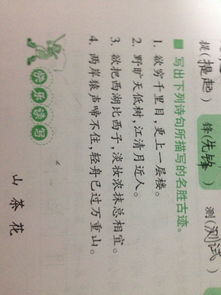 提(提起)
锋(先锋)
测(测试)
■写出下列诗句所描写的名胜古迹。
1. 欲穷千里目,更上一层楼。
2. 野旷天低树,江清月近人。
3. 欲把西湖比西子,淡妆浓抹总相宜。
4. 两岸猿声啼不住,轻舟已过万重山。
快乐读写
山茶花